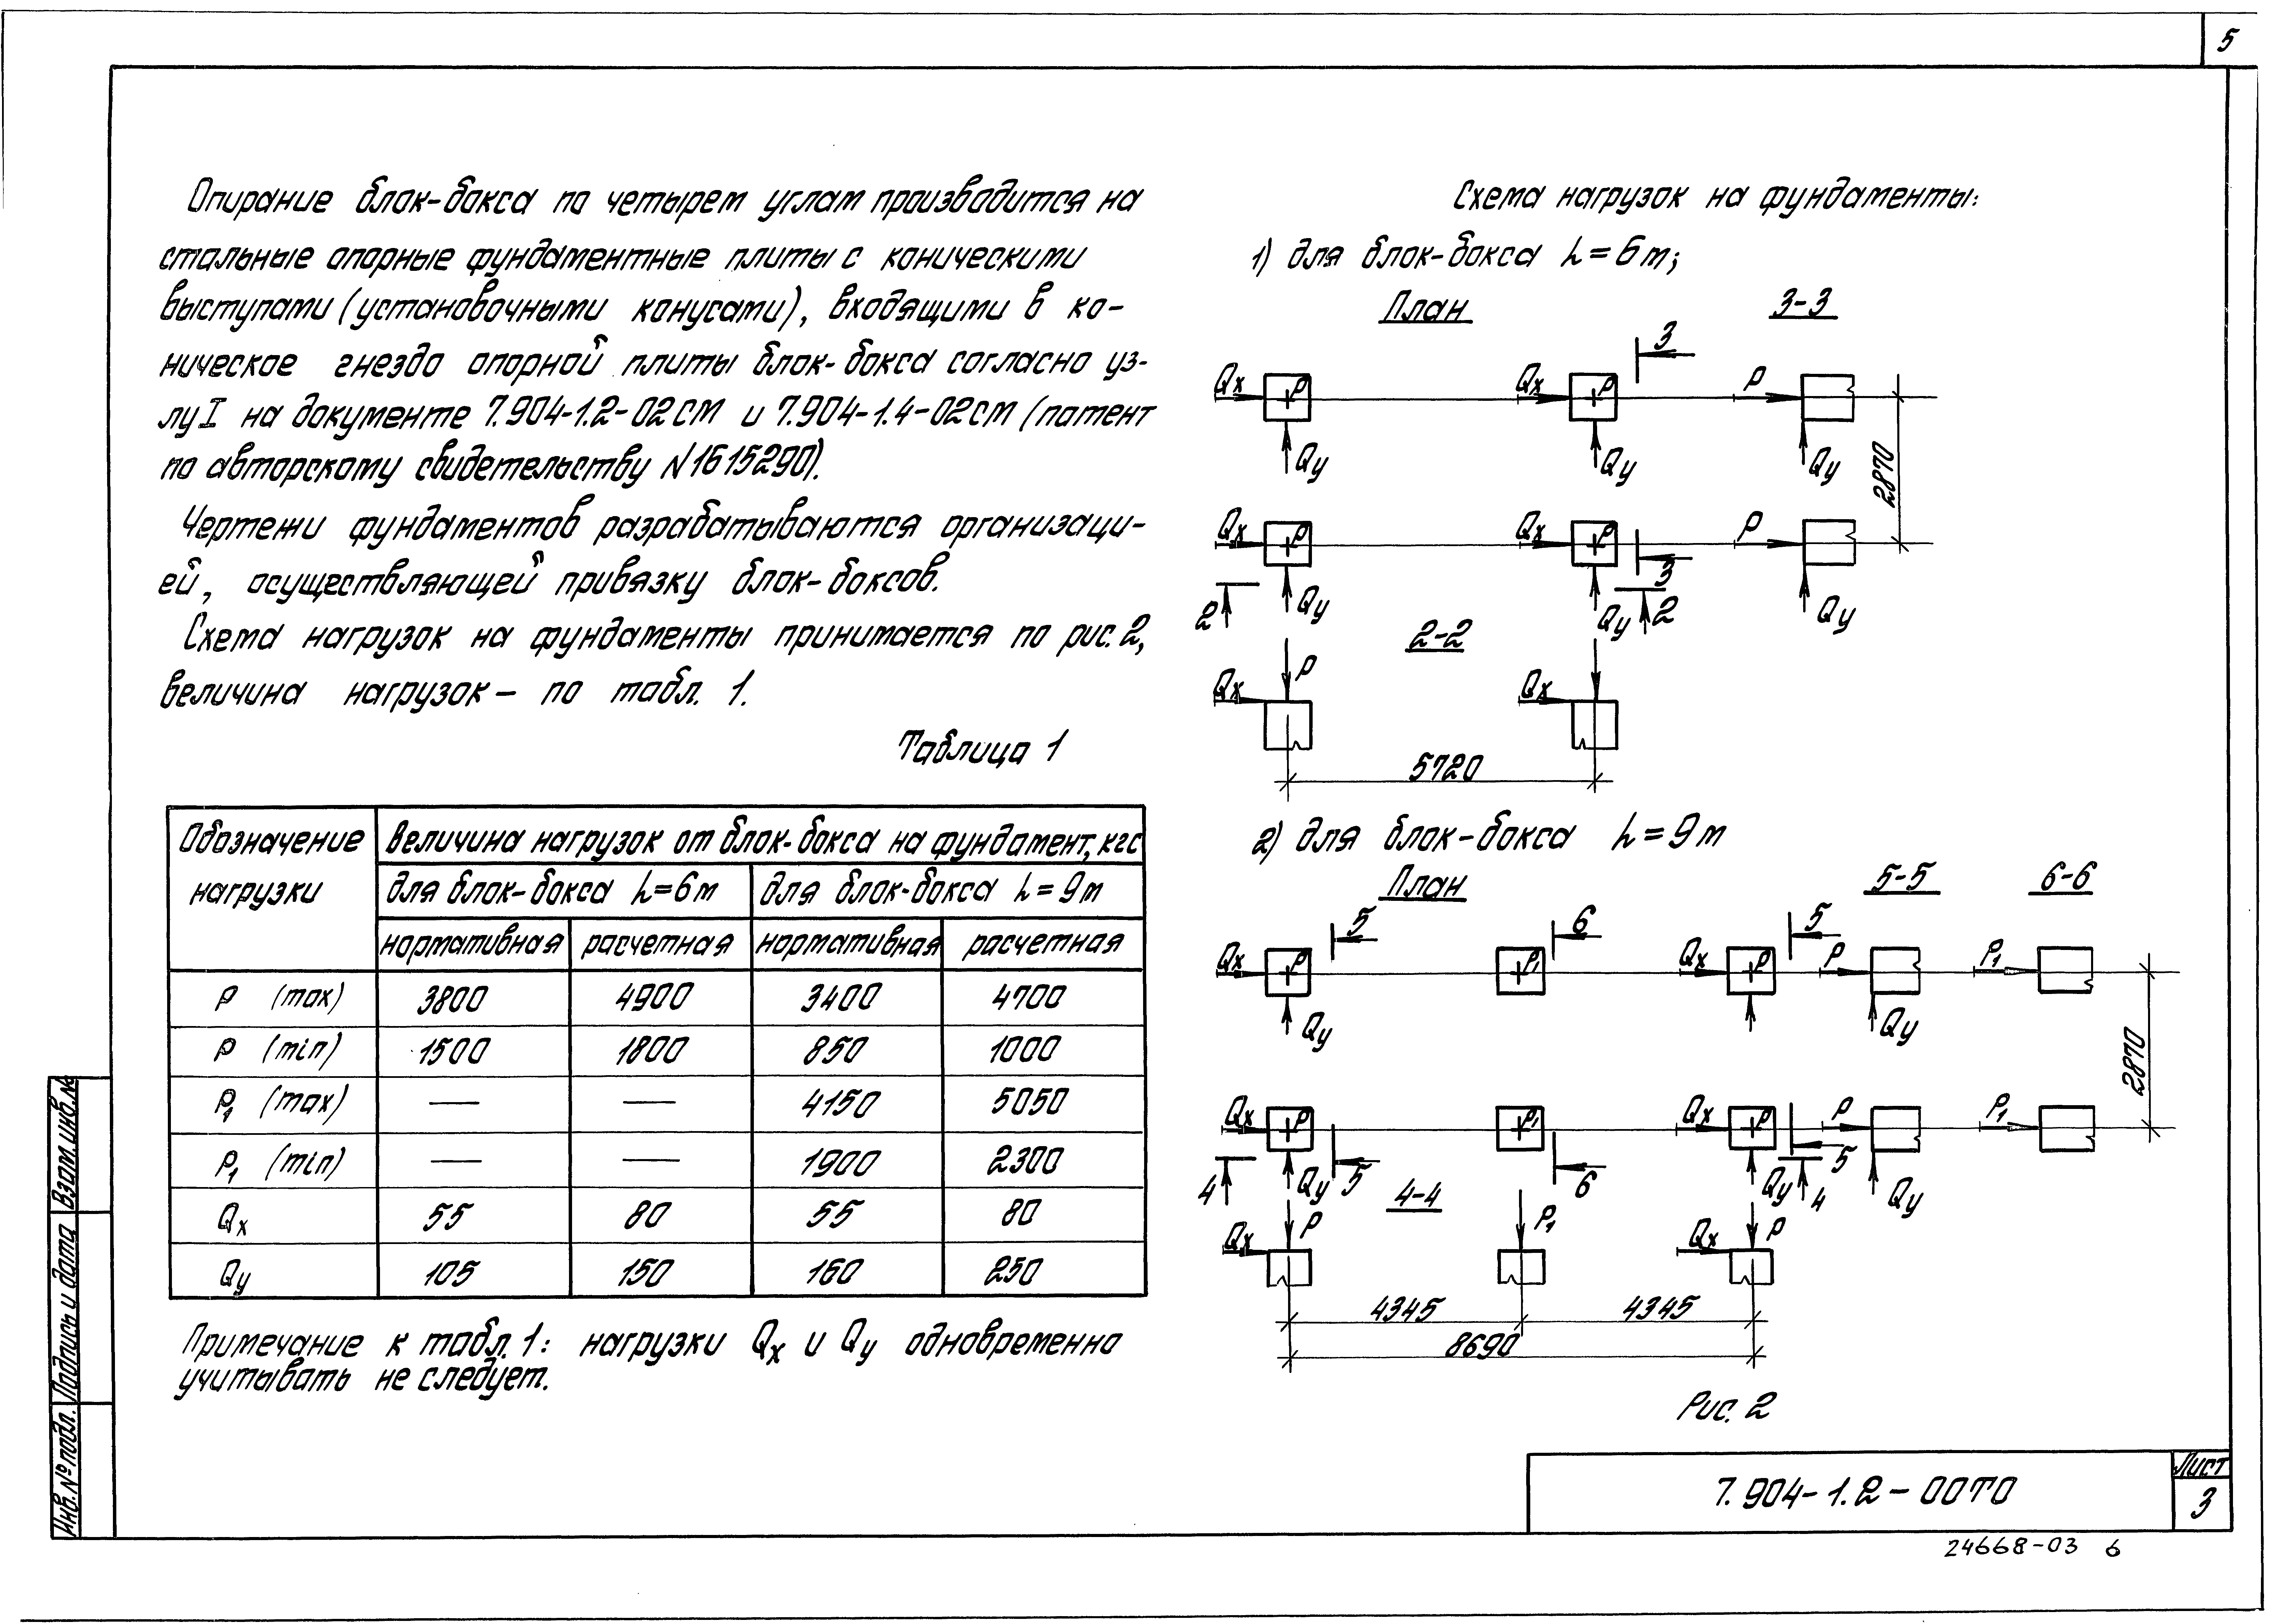 5
Опирание блок-бокса по четырем углам производится на
стальные опорные фундаментные плиты с коническими
выступами (установочными конусами), входящими в ко-
ническое гнездо опорной плиты блок-бокса согласно уз-
лу I на документе 7.904-1.2-02СМ и 7.904-1.4-02СМ (патент
по авторскому свидетельству №1615290).
Чертежи фундаментов разрабатываются организаци-
ей, осуществляющей привязку блок-боксов.
Схема нагрузок на фундаменты принимается по рис. 2,
величина нагрузок – по табл. 1.
Таблица 1
Обозначение нагрузки
Величина нагрузок от блок-бокса на фундамент, кгс
для блок-бокса h=6м для блок-бокса h=9м
нормативная расчетная нормативная расчетная
P (max) 3800 4900 3400 4700
P (min) 1500 1800 850 1000
P1 (max) — — 4150 5050
P1 (min) — — 1900 2300
Qx 55 80 55 80
Qy 105 150 160 250
Примечание к табл. 1: нагрузки Qx и Qy одновременно
учитывать не следует.
Схема нагрузок на фундаменты:
1) для блок-бокса h=6м;
План 3-3
3
Qx P Qx P P
Qy Qy Qy
2870
Qx P Qx P P
3
2 Qy Qy 2 Qy
2-2
P
Qx Qx
5720
2) для блок-бокса h=9м
План 5-5 6-6
5 6 5
Qx P P1 Qx P P P1
Qy Qy
2870
Qx P P1 Qx P P P1
4 Qy 5 6 Qy 4 5 Qy
4-4
P P1 P
Qx Qx
4345 4345
8690
Рис. 2
7.904-1.2-00ТО
Лист
3
24668-03 6
Инв.№ подл. Подпись и дата Взам.инв.№